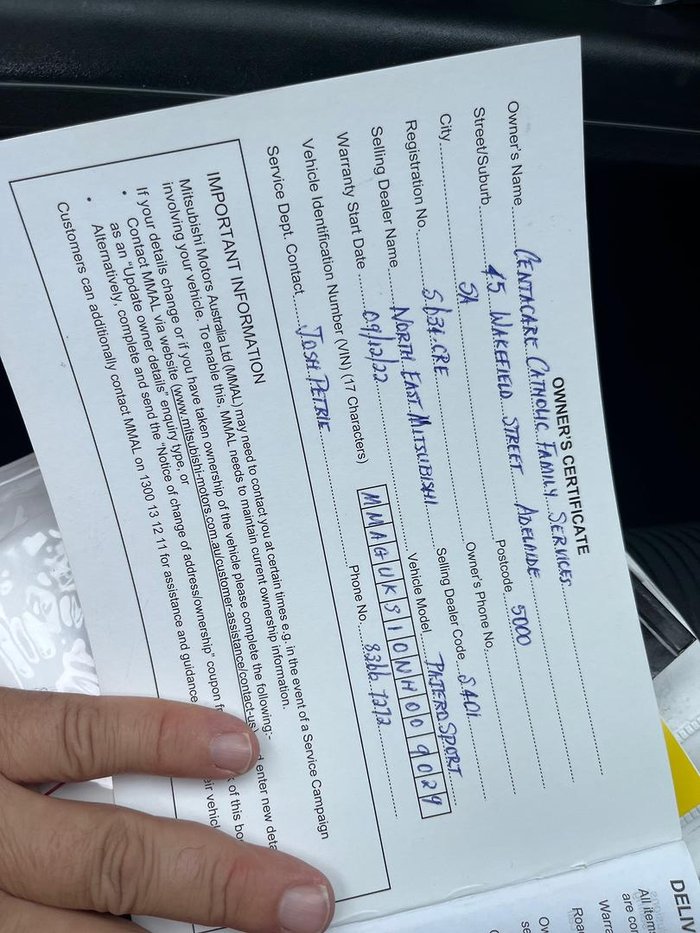 OWNER'S CERTIFICATE
Owner's Name CENTACARE CATHOLIC FAMILY SERVICES
Street/Suburb 45 WAKEFIELD STREET ADELAIDE
City SA Postcode 5000
Registration No. S134.CRE Owner's Phone No.
Selling Dealer Name NORTH EAST MITSUBISHI Selling Dealer Code S401
Warranty Start Date 09/12/22 Vehicle Model PAJERO SPORT
Vehicle Identification Number (VIN) (17 Characters) MMAGUKS10NH009029
Service Dept. Contact JOSH PETRIE Phone No. 8366 7272
IMPORTANT INFORMATION
Mitsubishi Motors Australia Ltd (MMAL) may need to contact you at certain times e.g. in the event of a Service Campaign
involving your vehicle. To enable this, MMAL needs to maintain current ownership information.
If your details change or if you have taken ownership of the vehicle please complete the following:-
• Contact MMAL via website (www.mitsubishi-motors.com.au/customer-assistance/contact-us) enter new
as an "Update owner details" enquiry type, or
• Alternatively, complete and send the "Notice of change of address/ownership" coupon of this
Customers can additionally contact MMAL on 1300 13 12 11 for assistance and guidance
DELIV
All item
are
Warra
Roa